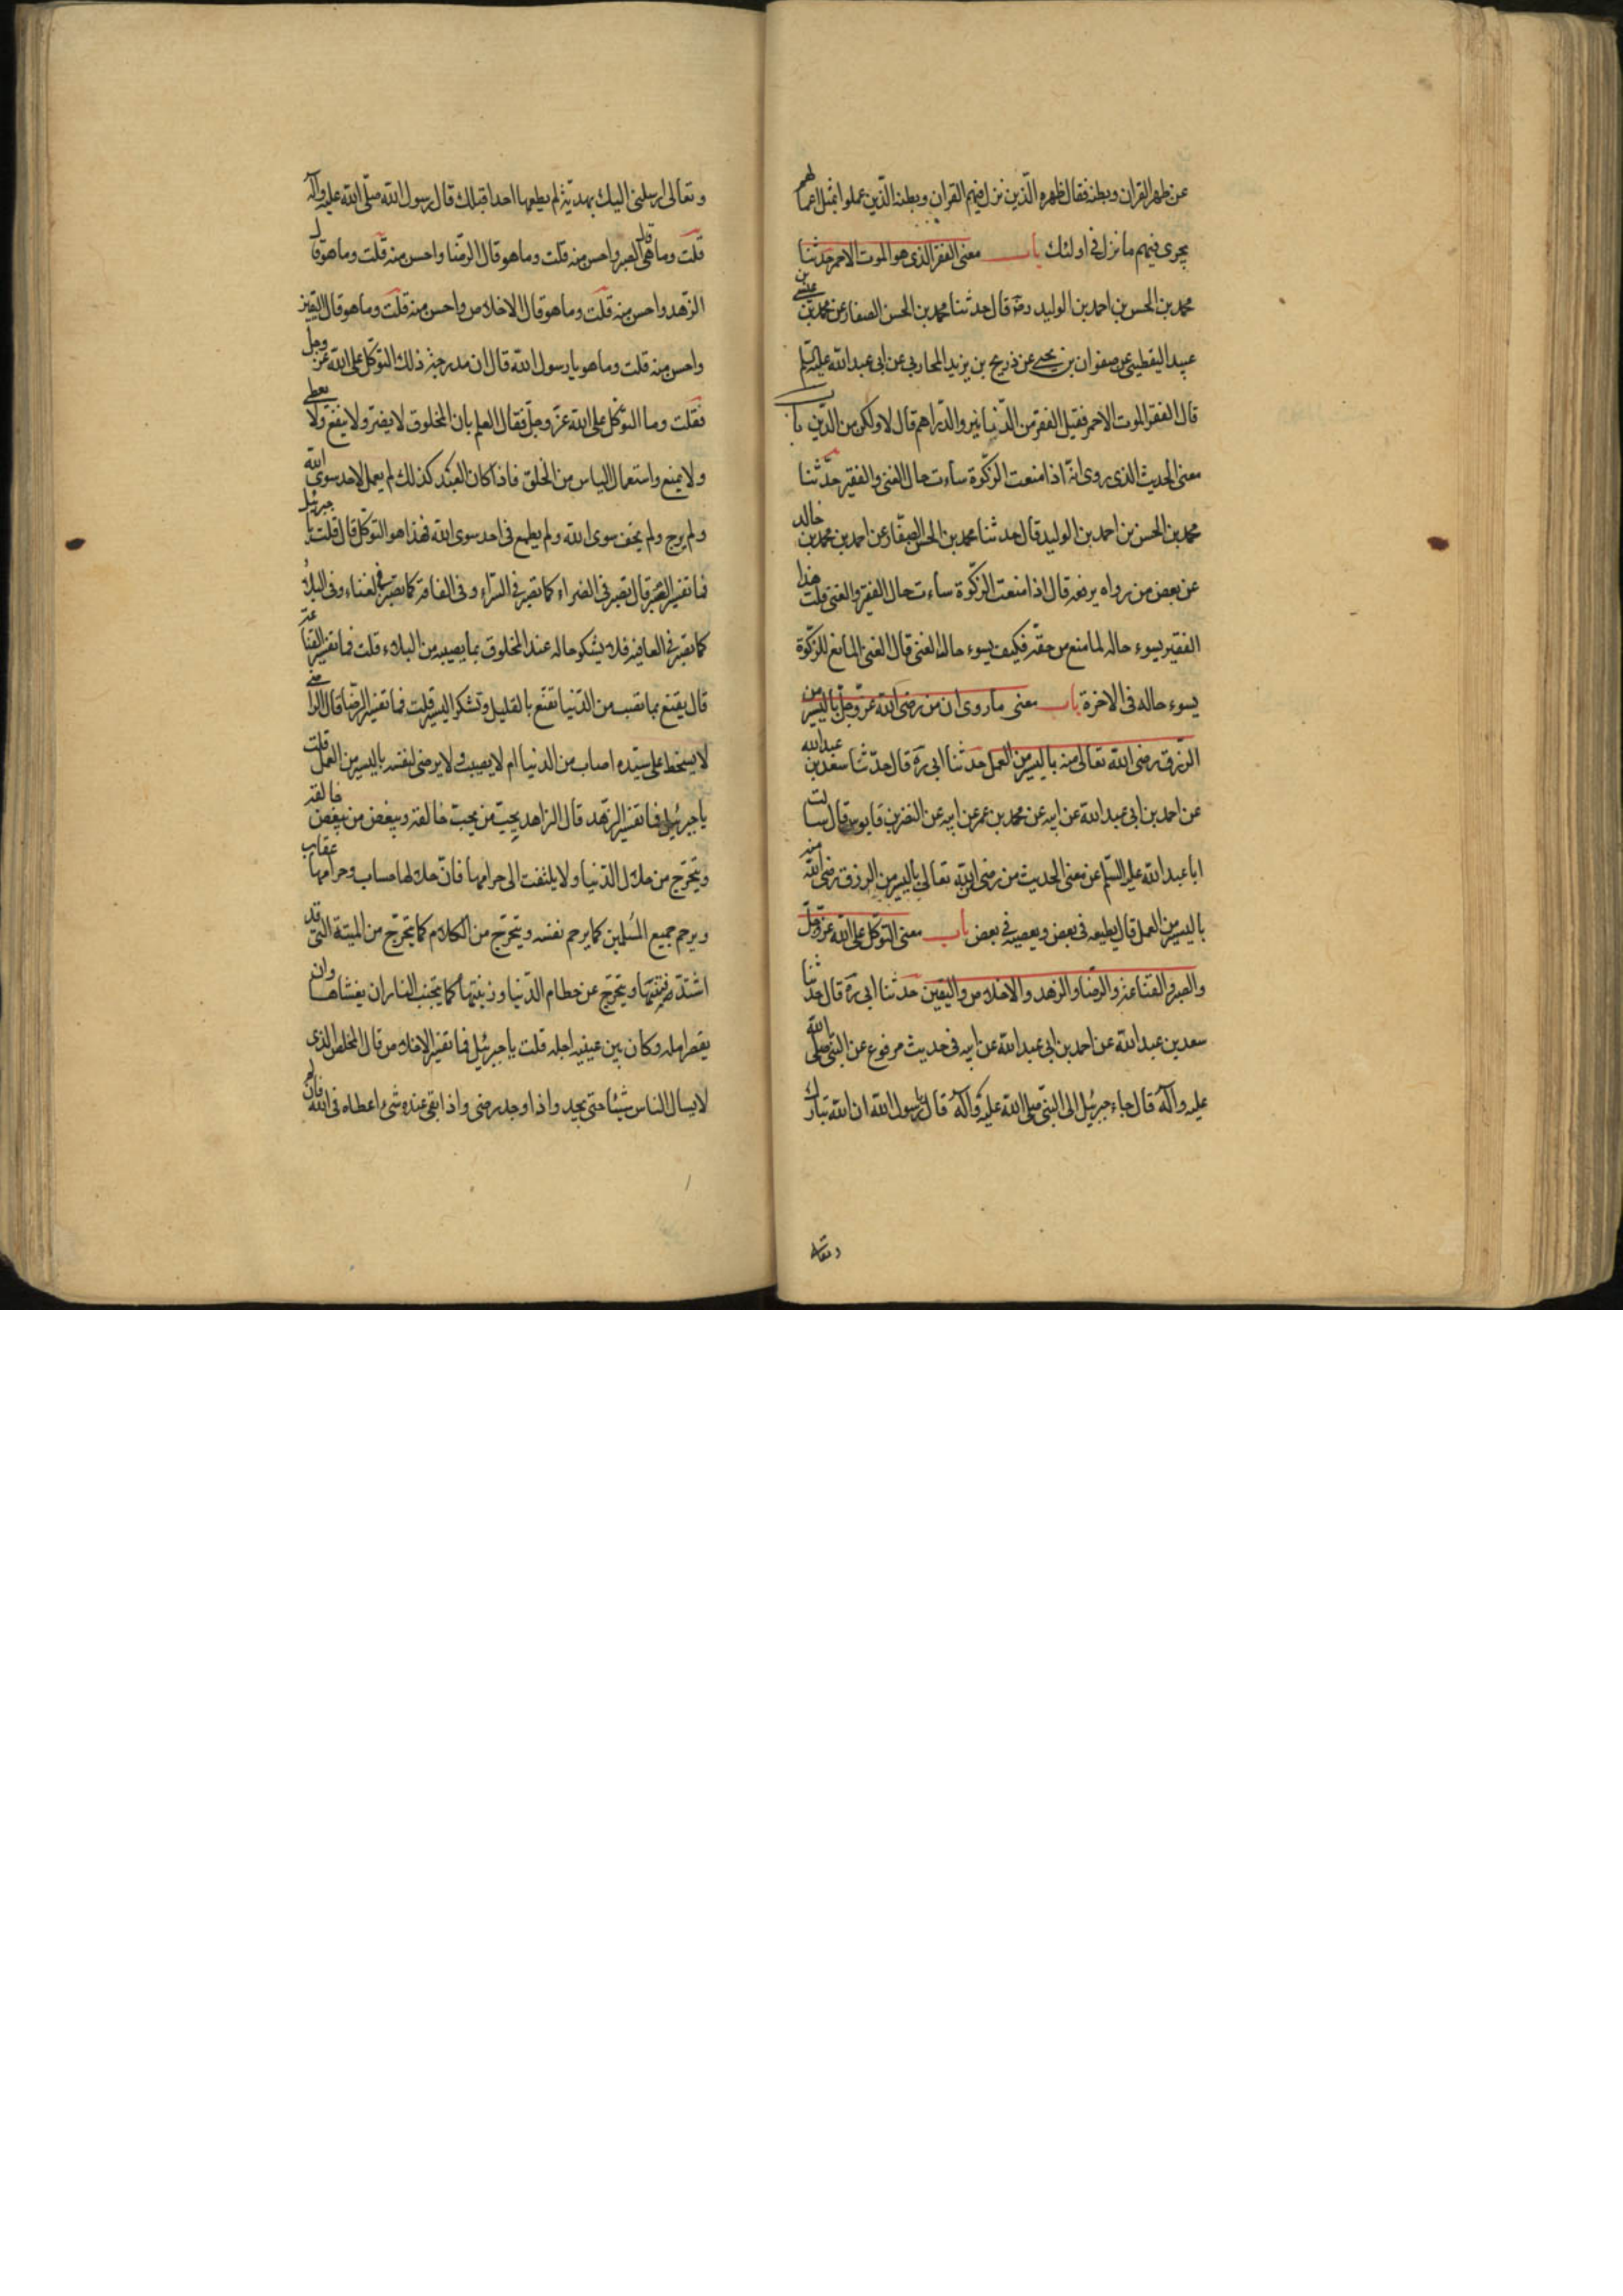 عن ظهر القران وبطنه فقال ظهره الذين نزل فيهم القران وبطنه الذين عملوا بمثل اعمالهم
يجرى فيهم ما نزل فى اولئك باب معنى الفقر الذى هو الموت الاحمر حدثنا
محمد بن الحسن بن احمد بن الوليد رضه قال حدثنا محمد بن الحسن الصفار عن محمد بن عيسى بن
عبيد اليقطينى عن صفوان بن يحيى عن ذريح بن يزيد المحاربى عن ابى عبد الله عليه السلم
قال الفقر الموت الاحمر فقيل الفقر من الدنانير والدراهم قال لا ولكن من الدين باب
معنى الحديث الذى روى انه اذا منعت الزكوة ساءت حال الغنى والفقير حدثنا
محمد بن الحسن بن احمد بن الوليد قال حدثنا محمد بن الحسن الصفار عن احمد بن محمد بن خالد
عن بعض من رواه يرفعه قال اذا منعت الزكوة ساءت حال الفقير والغنى قلت هذا
الفقير يسوء حاله لما منع من حقه فكيف يسوء حال الغنى قال الغنى المانع للزكوة
يسوء حاله فى الاخرة باب معنى ما روى ان من رضى الله عز وجل باليسير من
الرزق رضى الله تعالى منه باليسير من العمل حدثنا ابى ره قال حدثنا سعد بن عبد الله
عن احمد بن ابى عبد الله عن ابيه عن محمد بن عمر عن ابيه عن النضر بن قابوس قال سالت
ابا عبد الله عليه السلم عن معنى الحديث من رضى من الله تعالى باليسير من الرزق رضى الله منه
باليسير من العمل قال يطيعه فى بعض ويعصيه فى بعض باب معنى التوكل على الله عز وجل
والصبر والقناعة والرضا والزهد والاخلاص واليقين حدثنا ابى ره قال حدثنا
سعد بن عبد الله عن احمد بن ابى عبد الله عن ابيه فى حديث مرفوع عن النبى صلى الله
عليه وآله قال جاء جبرئيل الى النبى صلى الله عليه وآله قال يا رسول الله ان الله تبارك
وتعالى
وتعالى ارسلنى اليك بهدية لم يعطها احدا قبلك قال رسول الله صلى الله عليه وآله
قلت وما هى قال الصبر واحسن منه قلت وما هو قال الرضا واحسن منه قلت وما هو قال
الزهد واحسن منه قلت وما هو قال الاخلاص واحسن منه قلت وما هو قال اليقين
واحسن منه قلت وما هو يا رسول الله قال ان مدرجة ذلك التوكل على الله عز وجل
فقلت وما التوكل على الله عز وجل فقال العلم بان المخلوق لا يضر ولا ينفع ولا يعطى
ولا يمنع واستعمال الياس من الخلق فاذا كان العبد كذلك لم يعمل لاحد سوى الله
ولم يرج ولم يخف سوى الله ولم يطمع فى احد سوى الله فهذا هو التوكل قال قلت يا جبرئيل
فما تفسير الصبر قال تصبر فى الضراء كما تصبر فى السراء وفى الفاقة كما تصبر فى الغناء وفى البلاء
كما تصبر فى العافية فلا يشكو حاله عند المخلوق بما يصيبه من البلاء قلت فما تفسير القناعة
قال يقنع بما تصيب من الدنيا تقنع بالقليل وتشكر اليسير قلت فما تفسير الرضا قال الراضى
لا يسخط على سيده اصاب من الدنيا ام لا يصيب ولا يرضى لنفسه باليسير من العمل قلت
يا جبرئيل فما تفسير الزهد قال الزاهد يحب من يحب خالقه ويبغض من يبغض خالقه
ويتحرج من حلال الدنيا ولا يلتفت الى حرامها فان حلالها حساب وحرامها عقاب
ويرحم جميع المسلمين كما يرحم نفسه ويتحرج من الكلام كما يتحرج من الميتة التى قد
اشتد نتنها ويتحرج عن حطام الدنيا وزينتها كما يتجنب النار ان يغشاها وان
يقصر امله وكان بين عينيه اجله قلت يا جبرئيل فما تفسير الاخلاص قال المخلص الذى
لا يسال الناس شيئا حتى يجد واذا وجد رضى واذا بقى عنده شىء اعطاه فى الله فان لم